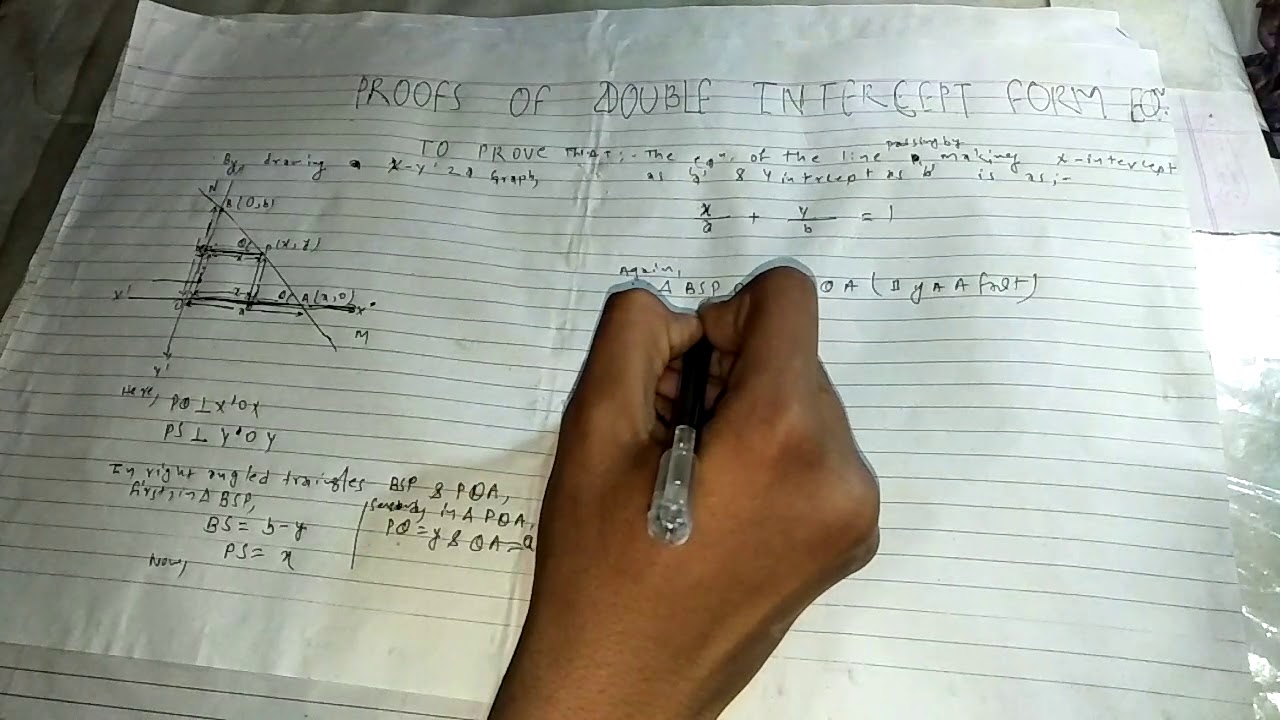 PROOFS OF DOUBLE INTERCEPT FORM EQ.
TO PROVE THAT:- The eqn. of the line passing by making x-intercept
as & y intercept as 'b' is as;-
x/a + y/b = 1
By, drawing x-y 2D Graph,
N
B(0,b)
P(x,y)
X'
O
A(
X
M
Y'
Here,
PQ⊥X'OX
PS⊥Y'OY
In right angled traingles BSP & PQA,
First, in Δ BSP,
BS= b-y
PS= x
in Δ PQA,
PQ=y & QA=a
Now,
Again,
Δ BSP QA (By AA fact)